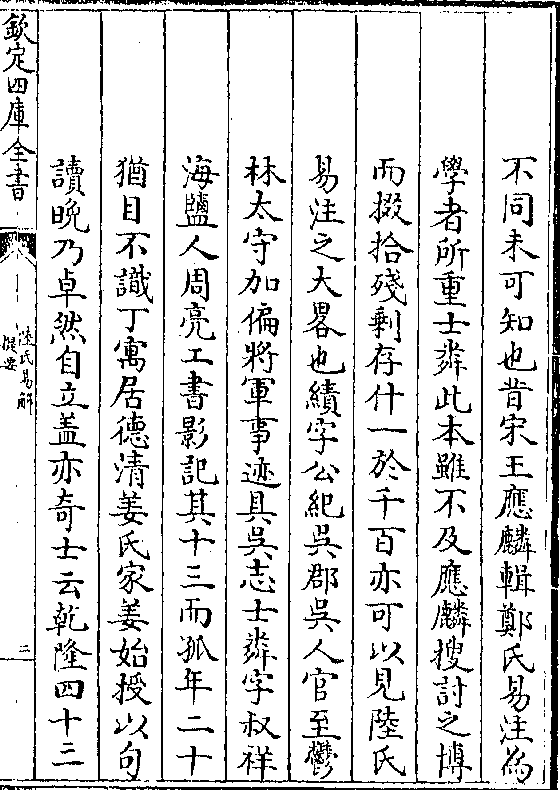 不同未可知也昔宋王應麟輯鄭氏易注為
學者所重士粦此本雖不及應麟搜討之博
而掇拾殘剩存什一於千百亦可以見陸氏
易注之大畧也績字公紀吳郡吳人官至鬱
林太守加偏將軍事迹具吳志士粦字叔祥
海鹽人周亮工書影記其十三而孤年二十
猶目不識丁寓居德清姜氏家姜始授以句
讀晚乃卓然自立盖亦奇士云乾隆四十二
欽定四庫全書
陸氏易解
提要
二